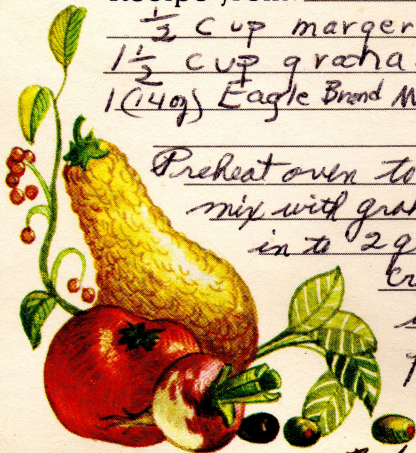 Recipe from
½ cup marger
1½ cup graha
1 (14oz) Eagle Brand M
Preheat oven to
mix with grah
in to 2 q
Cr